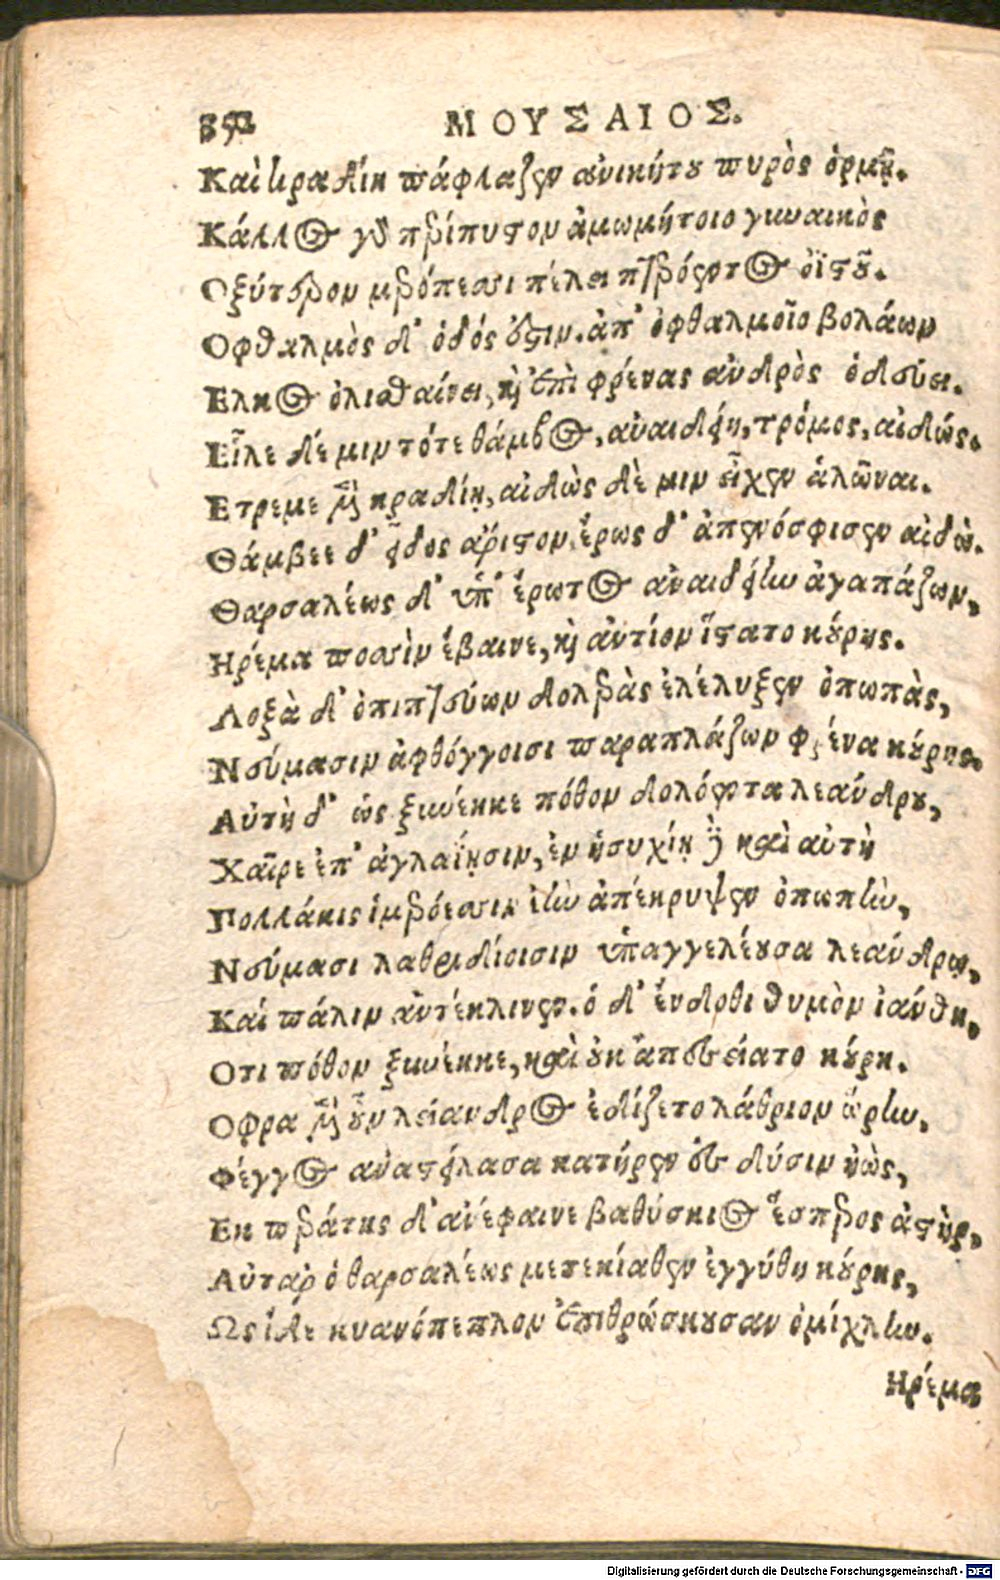 352
ΜΟΥΣΑΙΟΣ.
Καὶ κραδίη πάφλαζεν ἀνικήτου πυρὸς ὁρμῇ.
Κάλλος γὰρ περίπυστον ἀμωμήτοιο γυναικὸς
Οξύτερον μερόπεσσι πέλει πτερόεντος ὀϊστοῦ.
Οφθαλμὸς δ' ὁδός ἐστιν. ἀπ' ὀφθαλμοῖο βολάων
Ελκος ὀλισθαίνει, καὶ ἐπὶ φρένας ἀνδρὸς ὁδεύει.
Εἷλε δέ μιν τότε θάμβος, ἀναιδείη, τρόμος, αἰδώς.
Ετρεμε μὲν κραδίῃ, αἰδὼς δέ μιν εἶχεν ἁλῶναι.
Θάμβεε δ' εἶδος ἄριστον, ἔρως δ' ἀπενόσφισεν αἰδῶ.
Θαρσαλέως δ' ὑπ' ἔρωτος ἀναιδείην ἀγαπάζων,
Ηρέμα ποσσὶν ἔβαινε, καὶ ἀντίον ἵστατο κούρης.
Λοξὰ δ' ὀπιπτεύων δολερὰς ἐλέλιξεν ὀπωπὰς,
Νεύμασιν ἀφθόγγοισι παραπλάζων φρένα κούρης.
Αὐτὴ δ' ὡς ξυνέηκε πόθον δολόεντα λεάνδρου,
Χαῖρε ἐπ' ἀγλαΐῃσιν, ἐν ἡσυχίῃ δὲ καὶ αὐτὴ
Πολλάκις ἱμερόεσσαν ἑὴν ἀπέκρυψεν ὀπωπὴν,
Νεύμασι λαθριδίοισιν ὑπαγγελέουσα λεάνδρῳ,
Καὶ πάλιν ἀντέκλινεν. ὁ δ' ἔνδοθι θυμὸν ἰάνθη,
Οτι πόθον ξυνέηκε, καὶ οὐκ ἀπεσείσατο κούρη.
Οφρα μὲν οὖν λείανδρος ἐδίζετο λάθριον ὥρην,
Φέγγος ἀναστείλασα κατήρεν ἐς δύσιν ἠὼς,
Εκ περάτης δ' ἀνέφαινε βαθύσκιος ἕσπερος ἀστήρ.
Αὐτὰρ ὁ θαρσαλέως μετεκίαθεν ἐγγύθι κούρης,
Ως ἴδε κυανόπεπλον ἐπιθρώσκουσαν ὀμίχλην.
Ηρέμα
Digitalisierung gefördert durch die Deutsche Forschungsgemeinschaft - DFG